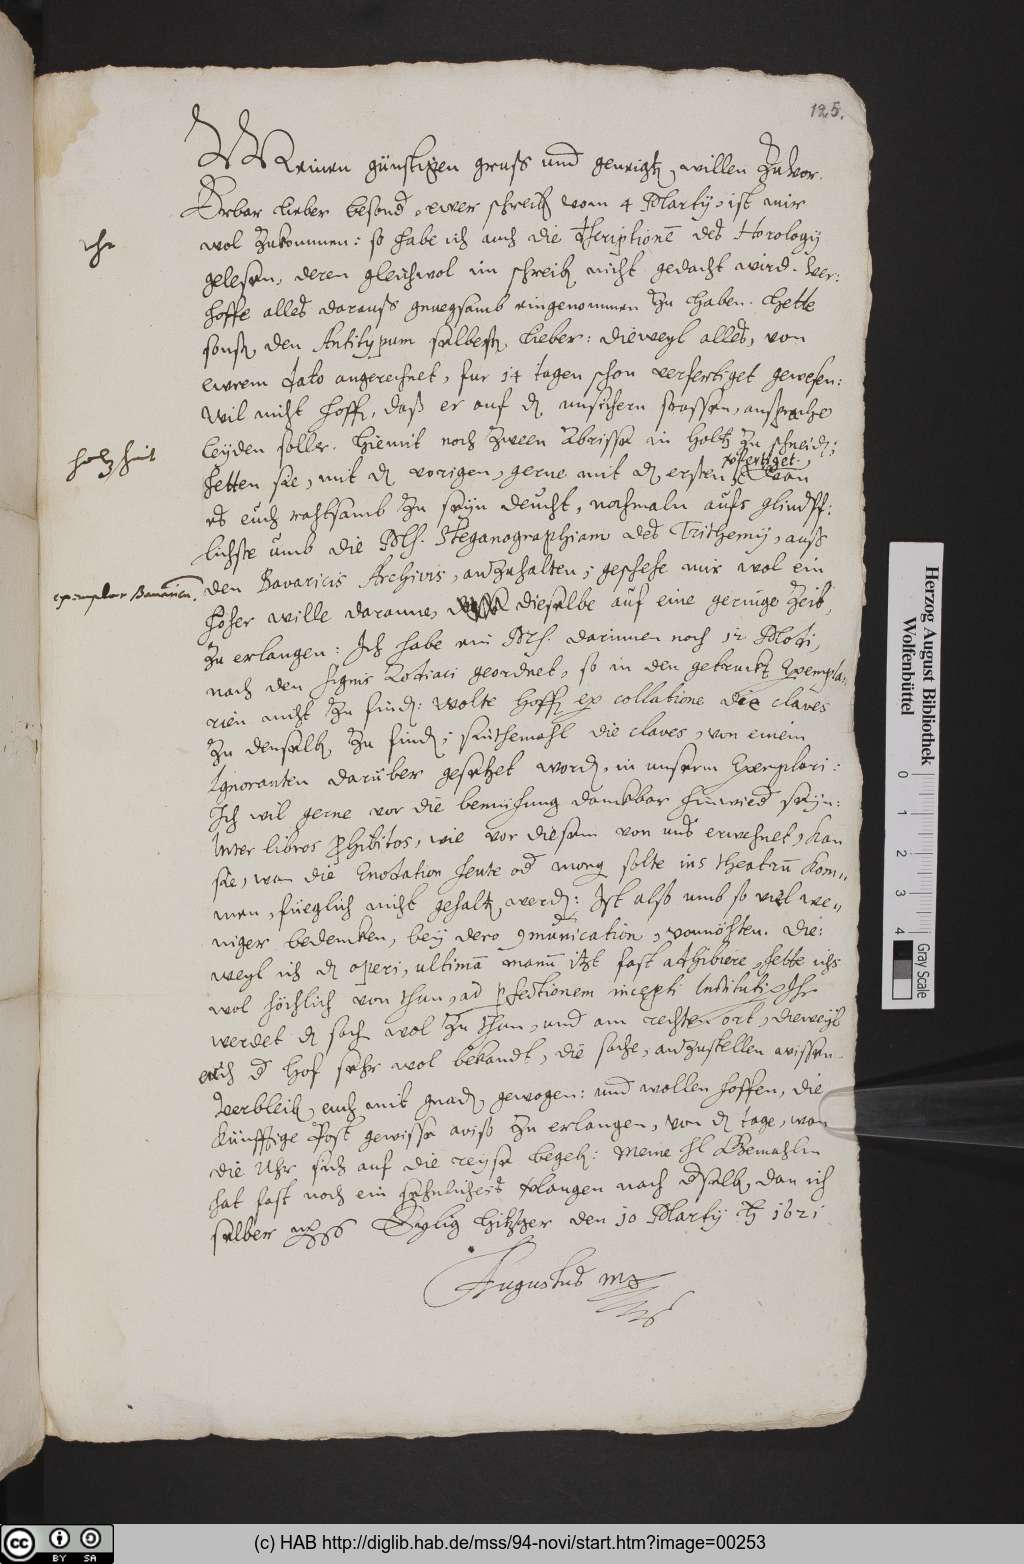 125.
Meinen günstigen gruß und geneigtē willen zuvor.
Erbar lieber besond., ewer schreibē vom 4 Martij, ist mir
wol zukommen: so habe ich auch die des Horologij
gelesen, deren gleichwol im schreibē nicht gedacht wird. Ver:
hoffe alles darauß gnuegsamb eingenommen zu haben. Hette
sonstē den Antitypum selbest lieber: dieweyl alles, von
ewrem dato angerechnet, fur 14 tagen schon verfertiget gewesen:
Wil nicht hoffē, daß er auf dē unsichern strassen,
leyden solle. Hiemit noch zween Abrisse in holtz zu schneidē;
verfertiget.
hetten sie, mit dē vorigen, gerne mit dē ersten
es euch rahtsamb zu seyn deucht, nochmaln aufs glimpf:
lichste umb die Msc. Steganographiam des Trithemij, auß
den Bavaricis Archivis, anzuhalten; geschehe mir wol ein
exemplar Bauaricū.
hoher wille daranne, dieselbe auf eine geringe Zeit,
zu erlangen: Ich habe ein Msc. darinnen noch 12 Modi,
nach den signis Zodiaci geordnet, so in den getrucktē Exempla-
rien nicht zu findē: wolte hoffē ex collatione die claves
zu denselbē zu findē; sinthemahl die claves, von einem
Ignoranten darüber gesetzet wordē, in unserm Exemplari:
Ich wil gerne vor die bemühung danckbar hinwied seyn:
Inter libros prohibitos, wie vor diesem von uns erwehnet, kan
sie, wan die Enodation heute od morgē solte ins theatrū kom-
men, füeglich nicht gehaltē werdē: Ist also umb so viel we-
niger bedencken, bey dero communication, vonnöhten. Die:
weyl ich dē operi, ultimā manū itzt fast adhibiere, hette ichs
wol höchlich von thun, ad perfectionem incepti Instituti. Ihr
werdet dē sachē wol zu thun, und am rechten ort, dieweyl
euch d Hof sehr wol bekandt, die sache, anzustellen wissen.
Verbleibē euch mit gnadē gewogen: und wollen hoffen, die
künfftige Post gewisse aviß zu erlangen, von dē tage, wan
die Uhr sich auf die reyse begebē: Meine hl Gemahlin
hat fast noch ein sehnlichers verlangen nach dselbē, dan ich
selber Eylig Hitzger den 10 Martij 1621
Augustus